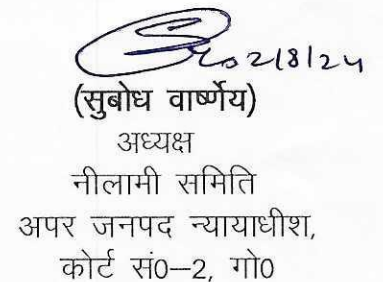 02/8/24
(सुबोध वार्ष्णेय)
अध्यक्ष
नीलामी समिति
अपर जनपद न्यायाधीश,
कोर्ट सं0-2, गो0